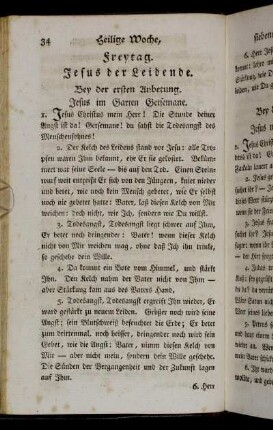 34 Heilige Woche,
Freytag.
Jesus der Leidende.
Bey der ersten Anbetung.
Jesus im Garten Getsemane.
1. Jesus Christus mein Herr! Die Stunde deiner
Angst ist da! Getsemane! du sahst die Todesangst des
Menschensohnes!
2. Der Kelch des Leidens stand vor Jesu: alle Tropfen
waren Ihm bekannt, ehe Er sie gekostet. Bekümmert
war seine Seele — bis zum Tod. Einen Steinwurf
weit entreißt Er sich von den Jüngern, kniet nieder
und betet, wie noch kein Mensch gebetet, wie Er selbst
noch nie gebetet hatte: Vater, laß diesen Kelch von Mir
weichen: doch nicht, wie Ich, sondern wie Du willst.
3. Todesangst, Todesangst liegt schwer auf Ihm,
Er betet noch dringender: Vater! wenn dieser Kelch
nicht von Mir weichen mag, ohne daß Ich ihn trinke,
so geschehe dein Wille.
4. Da kommt ein Bote vom Himmel, und stärkt
Ihn. Den Kelch nahm der Vater nicht von Ihm —
aber Stärkung kam aus des Vaters Hand.
5. Todesangst, Todesangst ergreift Ihn wieder, Er
ward gestärkt zu neuem Leiden. Größer noch wird seine
Angst; sein Blutschweiß befeuchtet die Erde; Er betet
zum drittenmal, noch heißer, dringender noch wird sein
Gebet, wie die Angst: Vater, nimm diesen Kelch von
Mir — aber nicht mein, sondern dein Wille geschehe.
Die Sünden der Vergangenheit und der Zukunft lagen
auf Ihm.
6. Herr